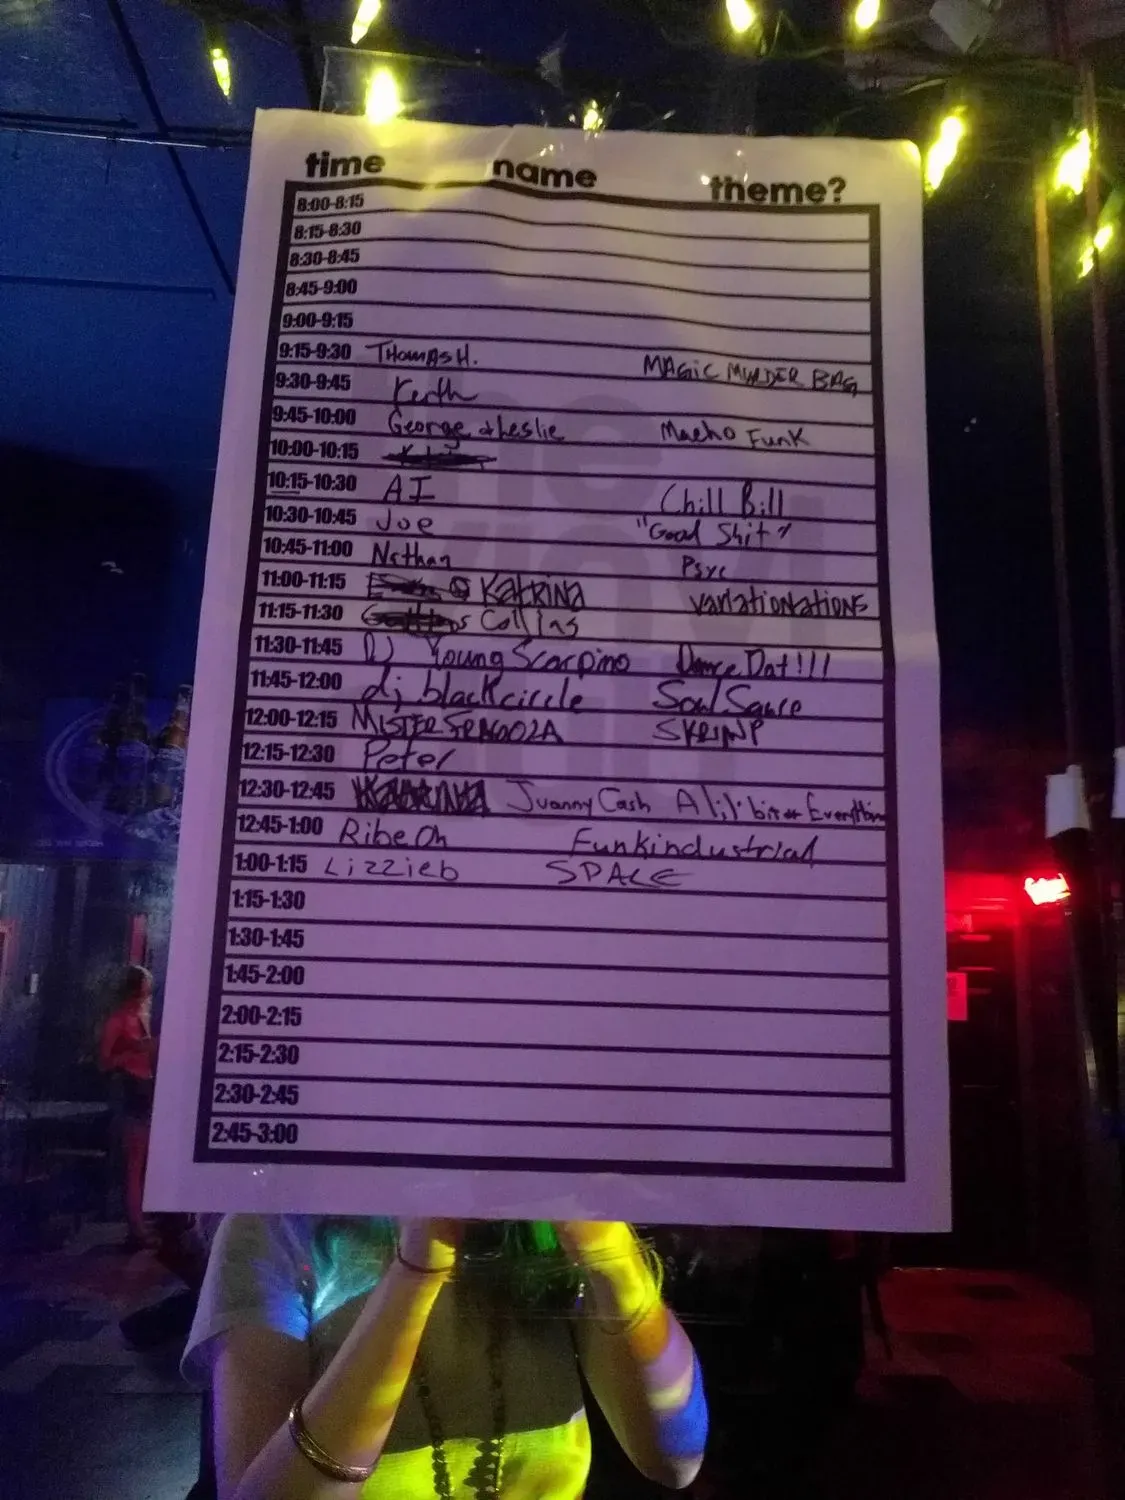 time name theme?
8:00-8:15
8:15-8:30
8:30-8:45
8:45-9:00
9:00-9:15
9:15-9:30 THOMAS H. MAGIC MURDER BAG
9:30-9:45 Keith
9:45-10:00 George & Leslie Macho Funk
10:00-10:15
10:15-10:30 AI Chill Bill
10:30-10:45 Joe "Good Shit"
10:45-11:00 Nathan Psyc
11:00-11:15 KATRINA VARIATIONATIONS
11:15-11:30 Collins
11:30-11:45 DJ Young Scorpino Dance Dat!!!
11:45-12:00 dj blackcircle Soul Sauce
12:00-12:15 MISTER SKRIMP
12:15-12:30 Peter
12:30-12:45 Juanny Cash A lil' bit of Everythin
12:45-1:00 Ribeoh Funkindustrial
1:00-1:15 Lizzieb SPACE
1:15-1:30
1:30-1:45
1:45-2:00
2:00-2:15
2:15-2:30
2:30-2:45
2:45-3:00